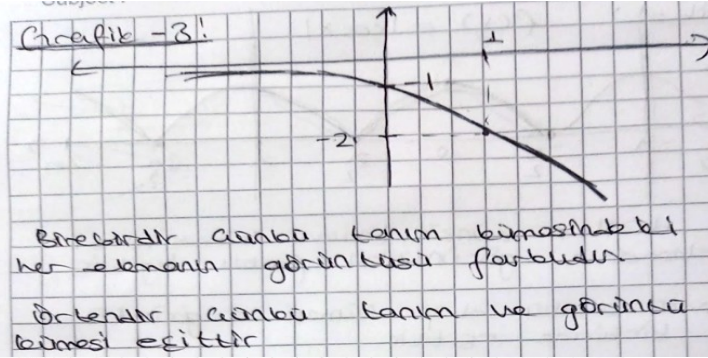 Grafik - 3!
1
-1
-2
Birebirdir çünkü tanım kümesindeki
her elemanın görüntüsü farklıdır.
Örtendir çünkü tanım ve görüntü
kümesi eşittir